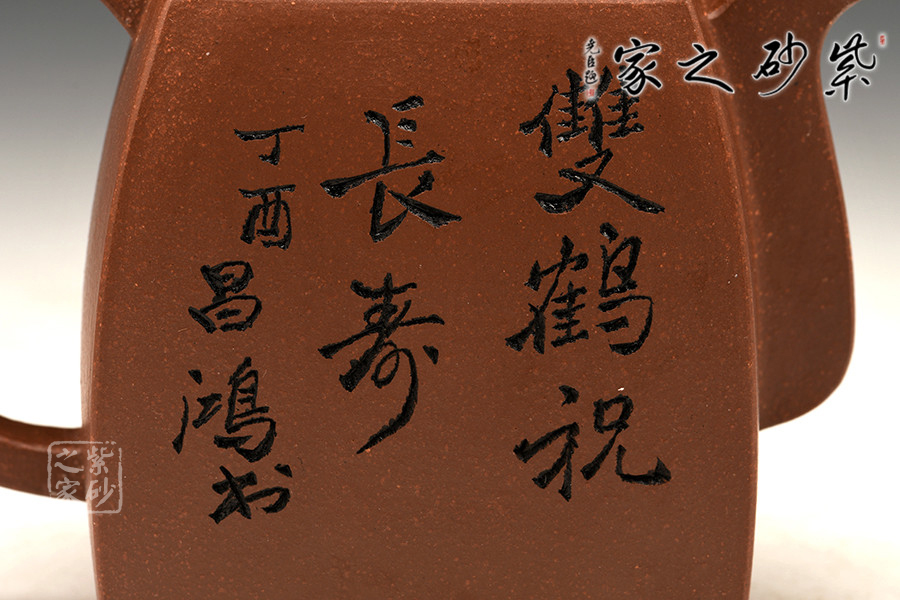 雙鶴祝
長壽
丁酉
昌鴻书
紫砂之家
紫砂之家